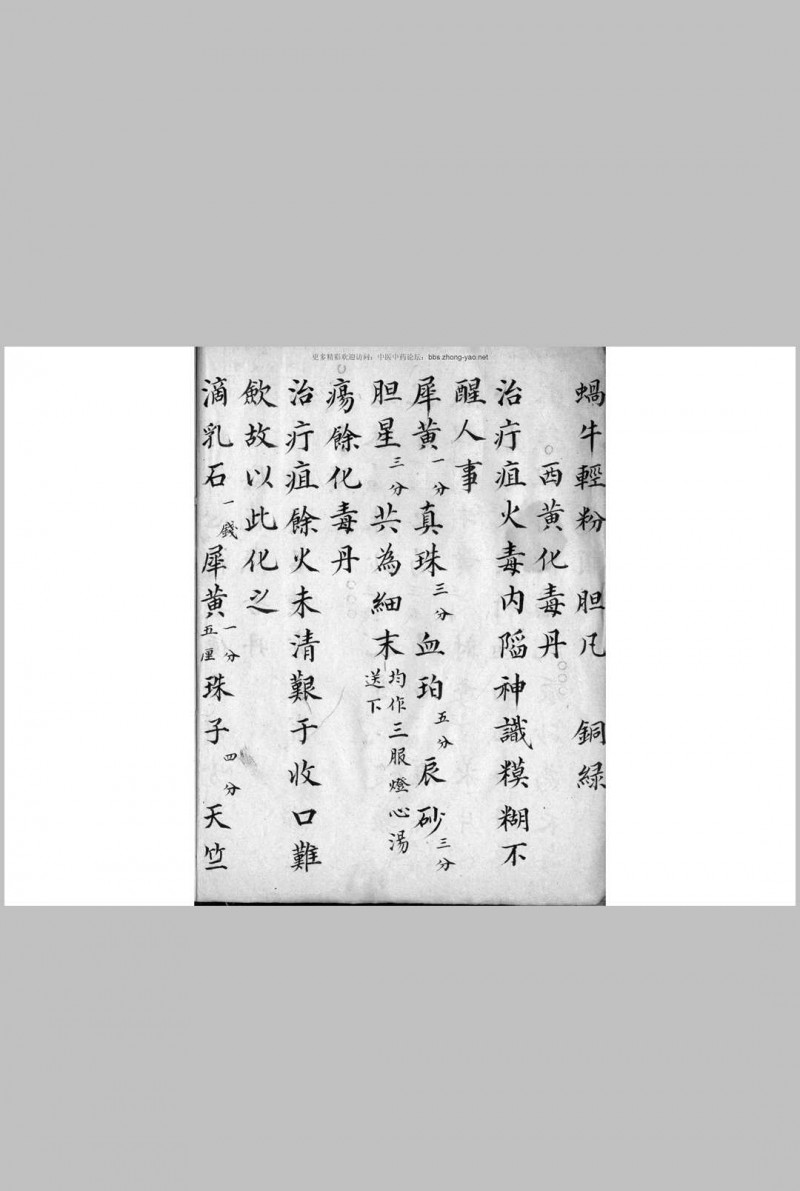 更多精彩欢迎访问：中医中药论坛：bbs.zhong-yao.net
蝸牛輕粉　胆凡　銅緑
○西黄化毒丹○○○
治疔疽火毒内陷神識糢糊不
醒人事
犀黄一分真珠三分血珀五分辰砂三分
胆星三分共為細末均作三服燈心湯送下
○瘍餘化毒丹○○○
治疔疽餘火未清艱于收口難
歛故以此化之
滴乳石一錢犀黄一分五厘珠子四分天竺